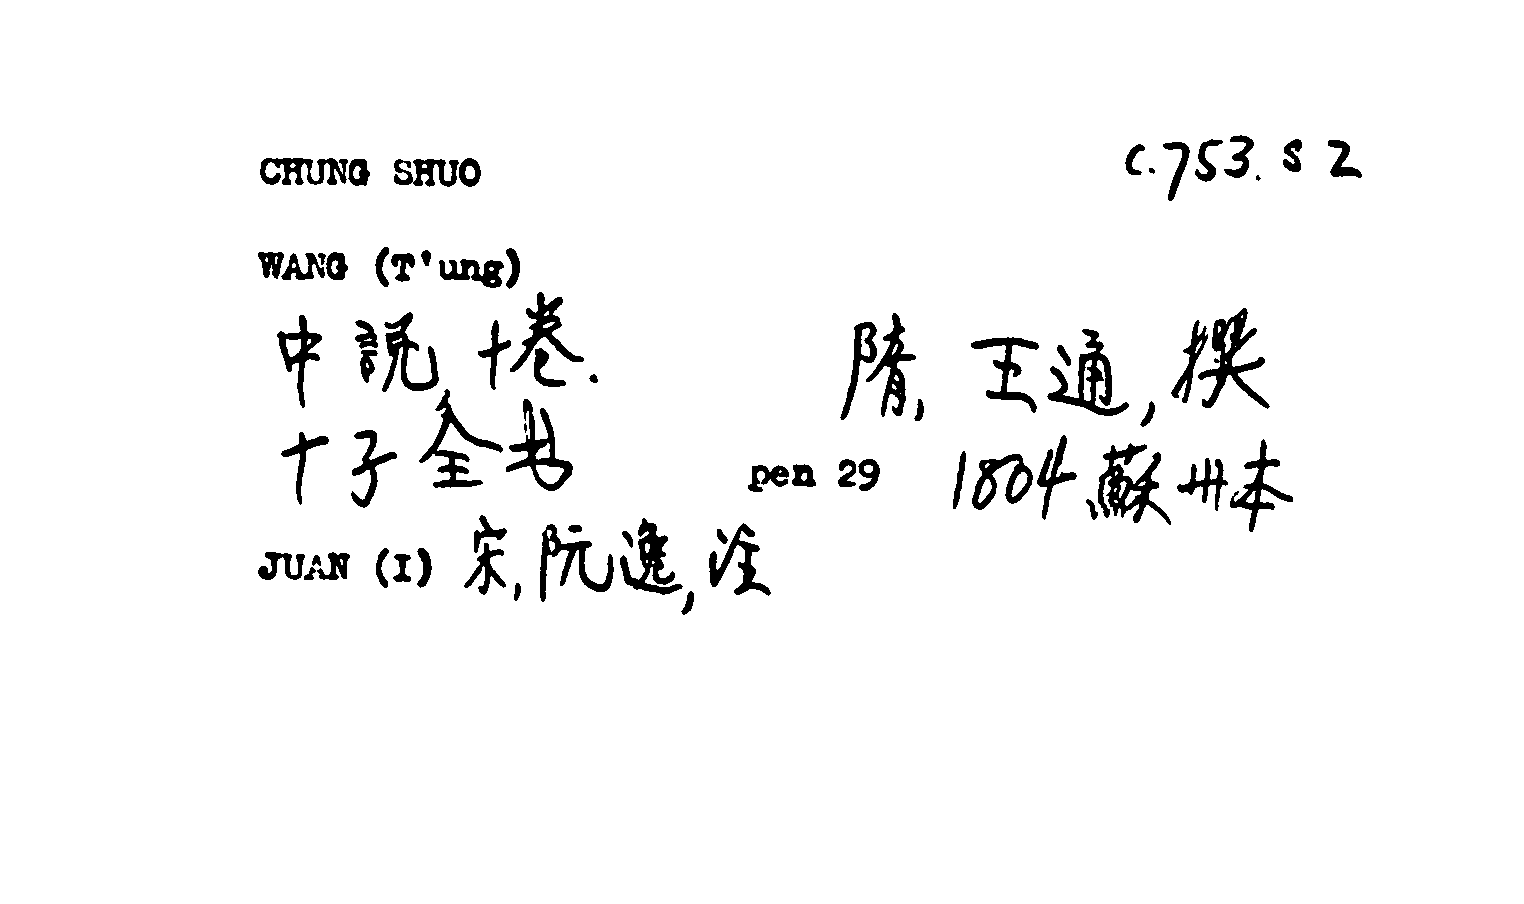 CHUNG SHUO C.753.S 2
WANG (T'ung)
中説十卷. 隋, 王通, 撰
十子全书 pen 29 1804 蘇州本
JUAN (I) 宋, 阮逸, 注